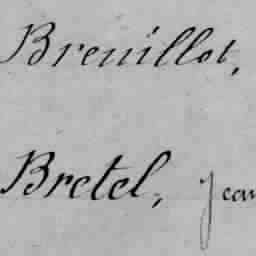 Breuillot,
Bretel, Jean